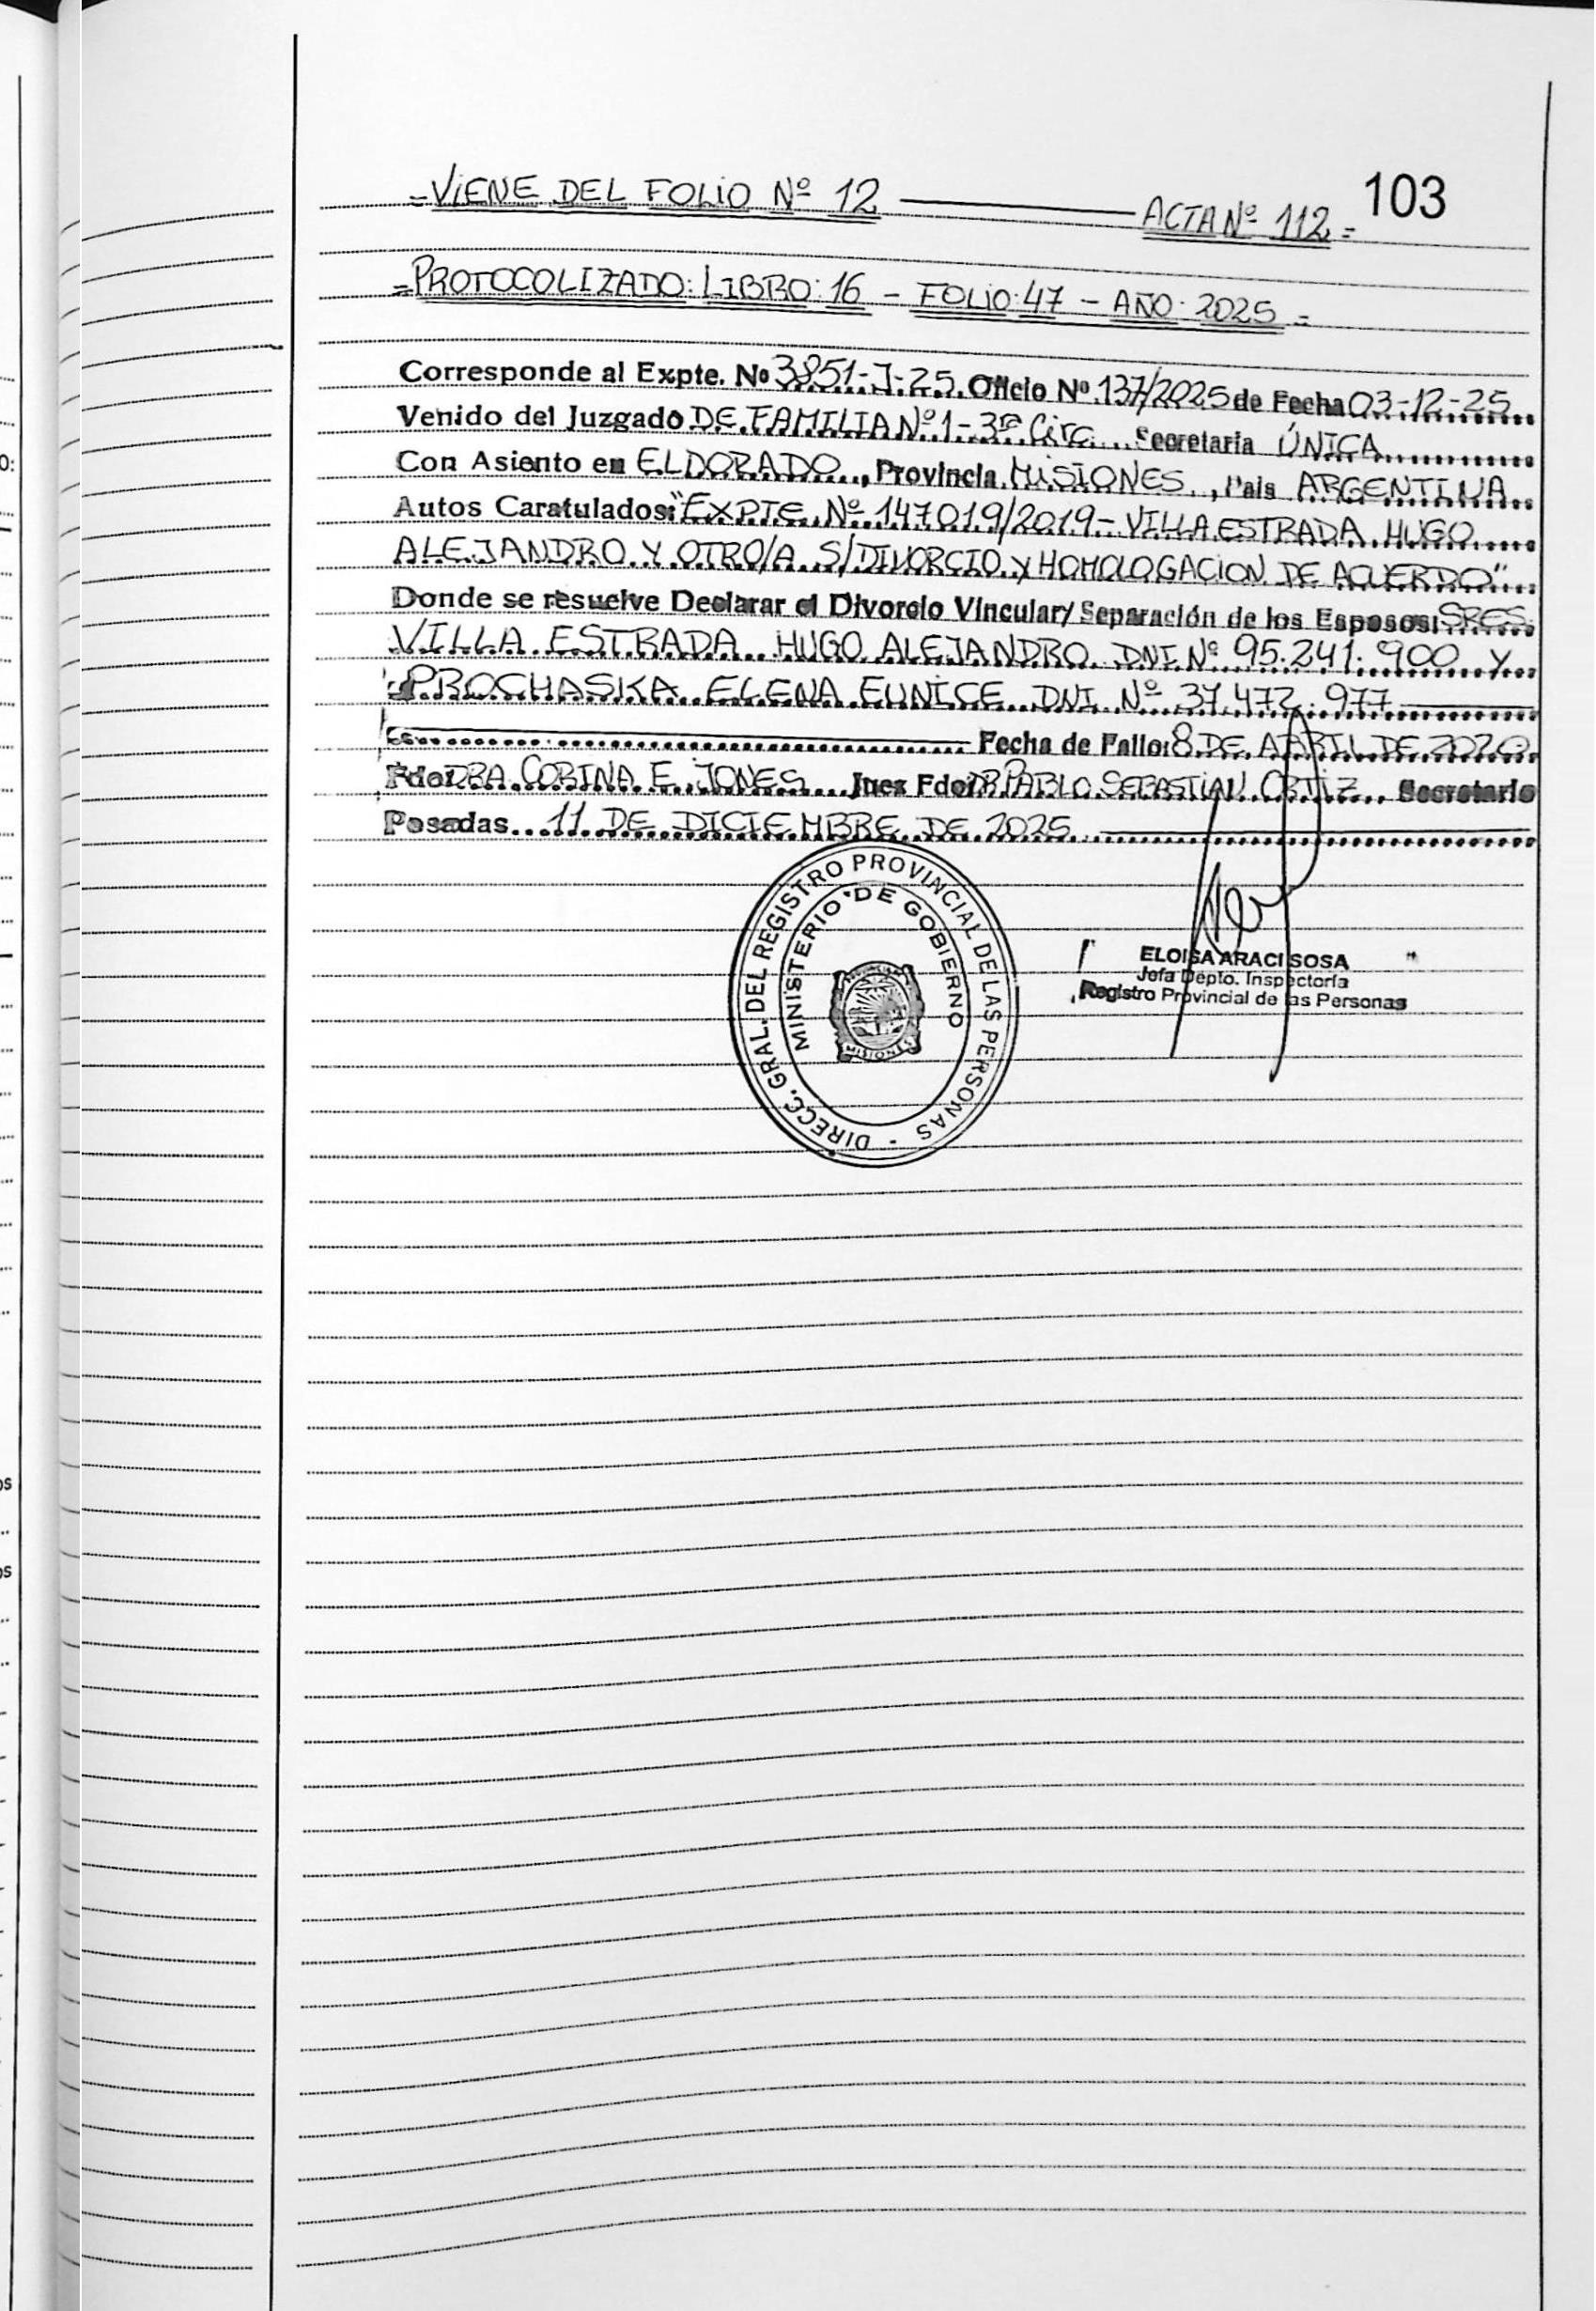 103
=VIENE DEL FOLIO Nº 12 ACTA Nº 112.=
=PROTOCOLIZADO: LIBRO: 16 - FOLIO: 47 - AÑO: 2025 =
Corresponde al Expte. Nº 3851-J-25. Oficio Nº 137/2025 de Fecha 03-12-25
Venido del Juzgado DE FAMILIA Nº 1 - 3ra Circ. Secretaría ÚNICA
Con Asiento en ELDORADO, Provincia MISIONES, Pais ARGENTINA
Autos Caratulados: "EXPTE Nº 147019/2019 - VILLA ESTRADA HUGO
ALEJANDRO Y OTRO/A S/ DIVORCIO Y HOMOLOGACION DE ACUERDO"
Donde se resuelve Declarar el Divorcio Vincular/ Separación de los Esposos: SRES.
VILLA ESTRADA HUGO ALEJANDRO DNI Nº 95.241.900 Y
PROCHASKA ELENA EUNICE DNI Nº 37.472.977
Fecha de Fallo: 8 DE ABRIL DE 2020
Fdo: DRA. CORINA E. JONES Juez Fdo: DR PABLO SEBASTIAN ORTIZ Secretario
Posadas 11 DE DICIEMBRE DE 2025
DIRECC. GRAL. DEL REGISTRO PROVINCIAL DE LAS PERSONAS -
MINISTERIO DE GOBIERNO
MISIONES
ELOISA ARACI SOSA
Jefa Depto. Inspectoría
Registro Provincial de las Personas